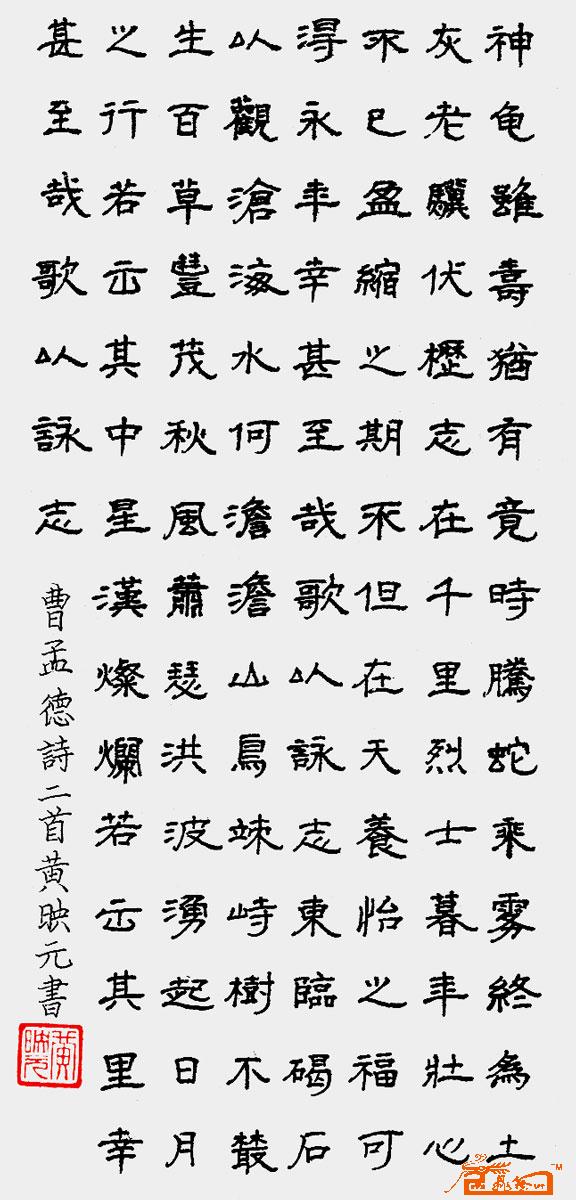 神龟雖壽猶有竟時騰蛇乘霧終為土
灰老驥伏櫪志在千里烈士暮年壯心
不已盈縮之期不但在天養怡之福可
得永年幸甚至哉歌以詠志東臨碣石
以觀滄海水何澹澹山鳥竦峙樹不叢
生百草豐茂秋風蕭瑟洪波湧起日月
之行若出其中星漢燦爛若出其里幸
甚至哉歌以詠志
曹孟德詩二首黄映元書
黄映元